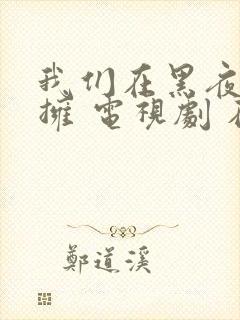 我们在黑夜
擁 電視劇
鄭道溪